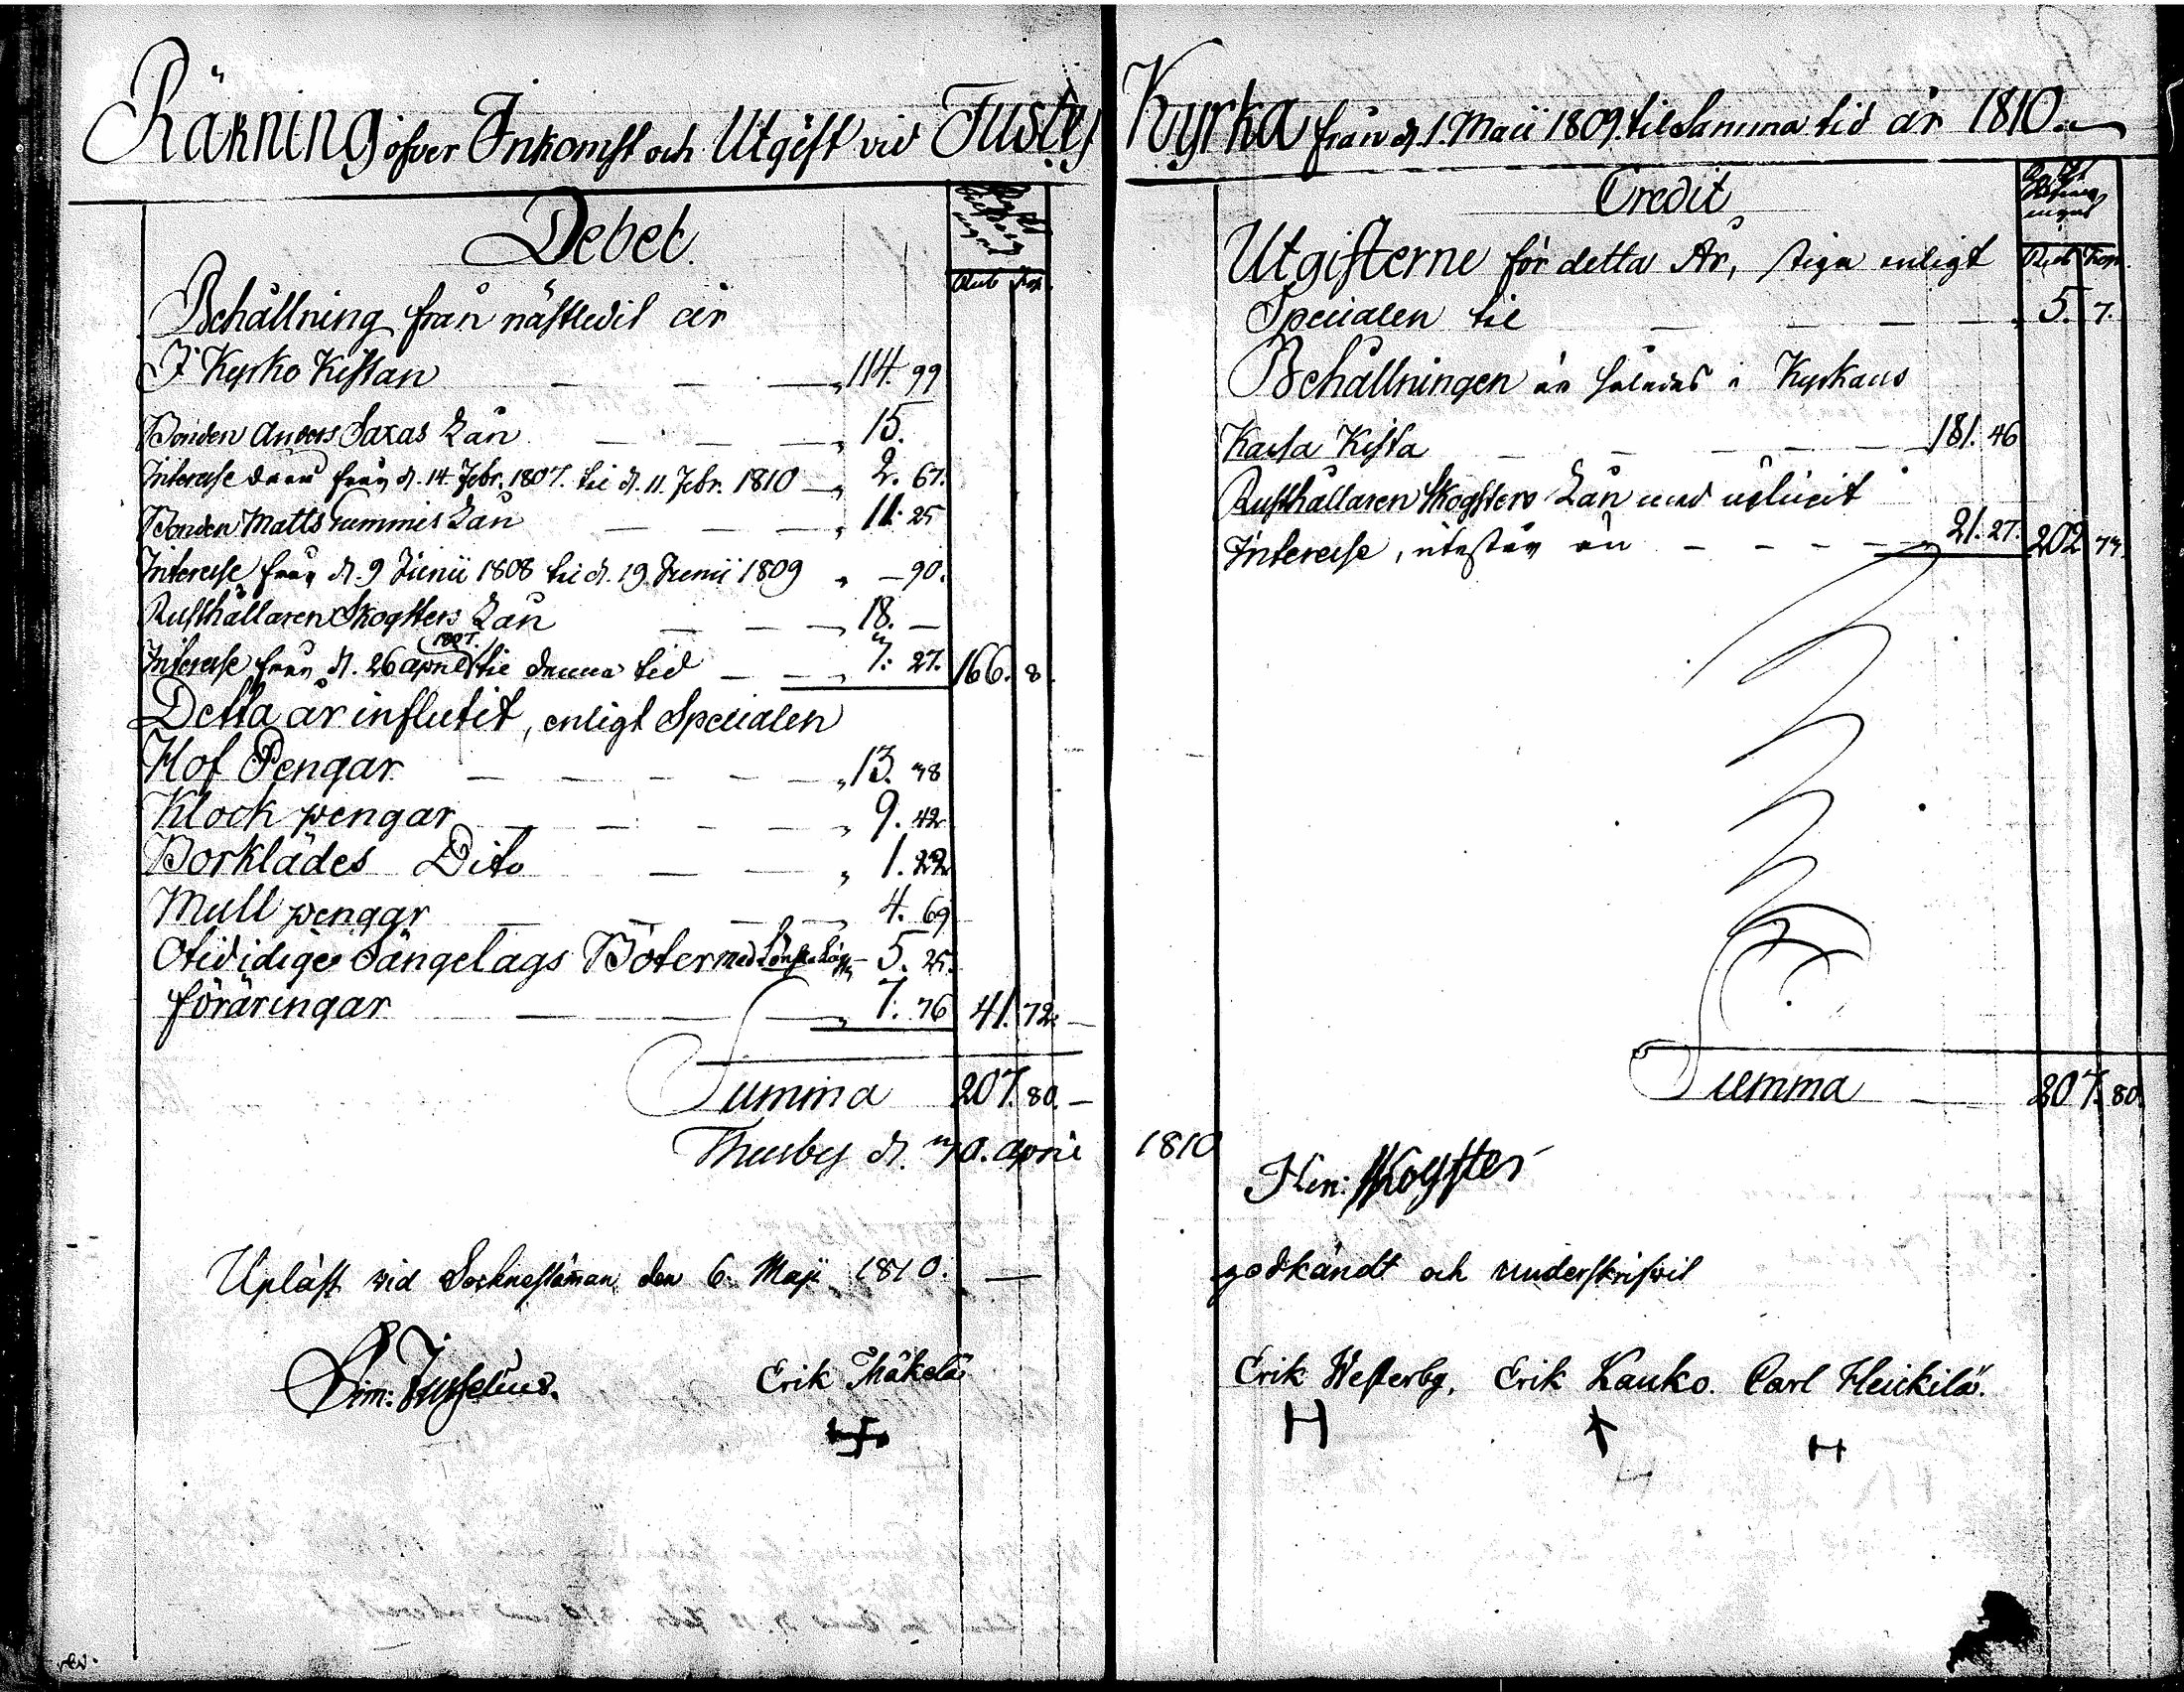 Räkning öfver Inkomst och Utgift vid Tusby Kyrka från d. 1. Maii 1809. til Samma tid år 1810.
Debet.
Rub Kop.
Behållning från nästledit år
I Kyrko Kistan 114. 99
Bonden Anders Saxas Lån 15.
Interesse deraf från d. 14 Febr. 1807. til d. 11. Febr. 1810 2. 67.
Bonden Matts rummis Lån 11. 25
Interesse från d. 9 Junii 1808 til d. 19. Junii 1809 – 90.
Rusthållaren Skogsters Lån 18. –
Interesse från d. 26 april 1807. til denna tid 3. 27. 166. 8.
Detta år influtit, enligt Specialen
Hof Pengar 13. 38
Klock pengar 9. 42
Borklädes Dito 1. 22
Mull pengar 4. 69
Otidige Sängelags Böter med 5. 25.
föräringar 7. 76 41. 72.
Summa 207. 80.
Thusby d. 30. April 1810
Upläst vid Socknestäman den 6. Maji 1810.
Sim: Jusselius.
Erik Mäkelä
Credit
Rub Kop.
Utgifterne för detta År, stiga enligt
Specialen til 5. 7.
Behållningen är således i Kyrkans
Kassa Kista 181. 46
Rusthållaren Skogsters Lån med uplupit
Interesse, utestår än 21. 27. 202 73.
Summa 207. 80.
Hen: Skogster
godkändt och underskrifvit
Erik Westerbg. Erik Kauko. Carl Heickilä.